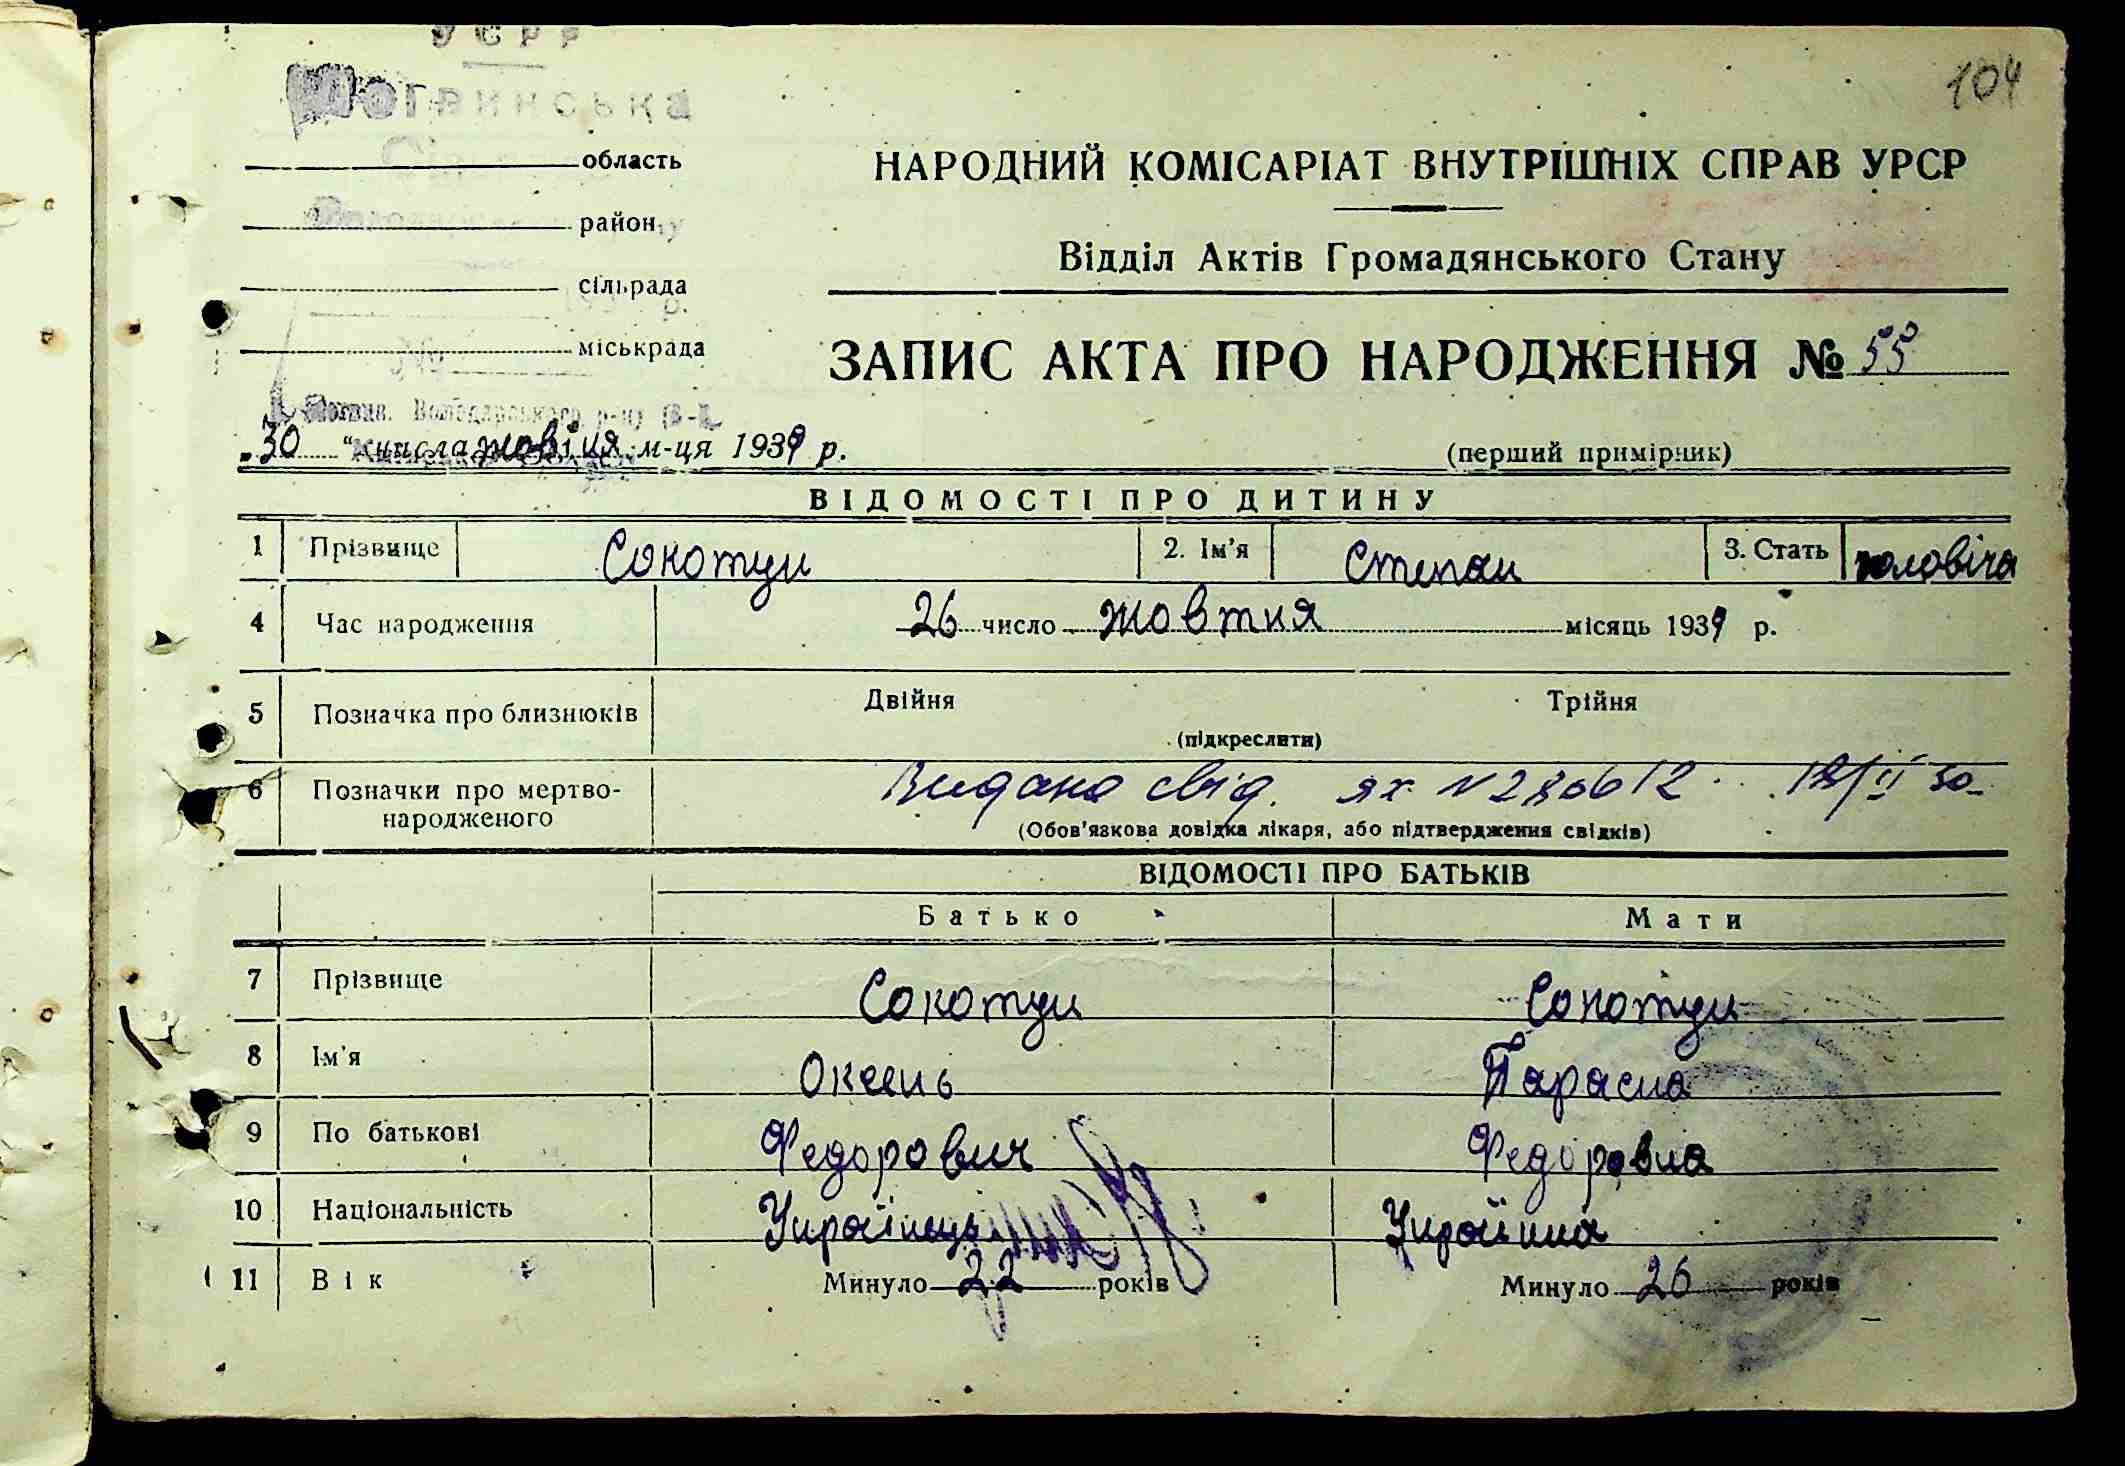 УСРР
104
Логвинська
область
НАРОДНИЙ КОМІСАРІАТ ВНУТРІШНІХ СПРАВ УРСР
район
Відділ Актів Громадянського Стану
сільрада
р.
міськрада
ЗАПИС АКТА ПРО НАРОДЖЕННЯ № 55
Логвин. Володарського р-ну
„30“ числа жовтня м-ця 1939 р.
(перший примірник)
ВІДОМОСТІ ПРО ДИТИНУ
1 Прізвище Сокотун 2. Ім'я Степан 3. Стать чоловіча
4 Час народження 26 число жовтня місяць 1939 р.
5 Позначка про близнюків Двійня Трійня
(підкреслити)
6 Позначки про мертвонародженого Видано свід. ЯХ N 286612
(Обов'язкова довідка лікаря, або підтвердження свідків)
ВІДОМОСТІ ПРО БАТЬКІВ
Батько Мати
7 Прізвище Сокотун Сокотун
8 Ім'я Оксень Параска
9 По батькові Федорович Федоровна
10 Національність Українець Українка
11 Вік Минуло 22 років Минуло 26 років